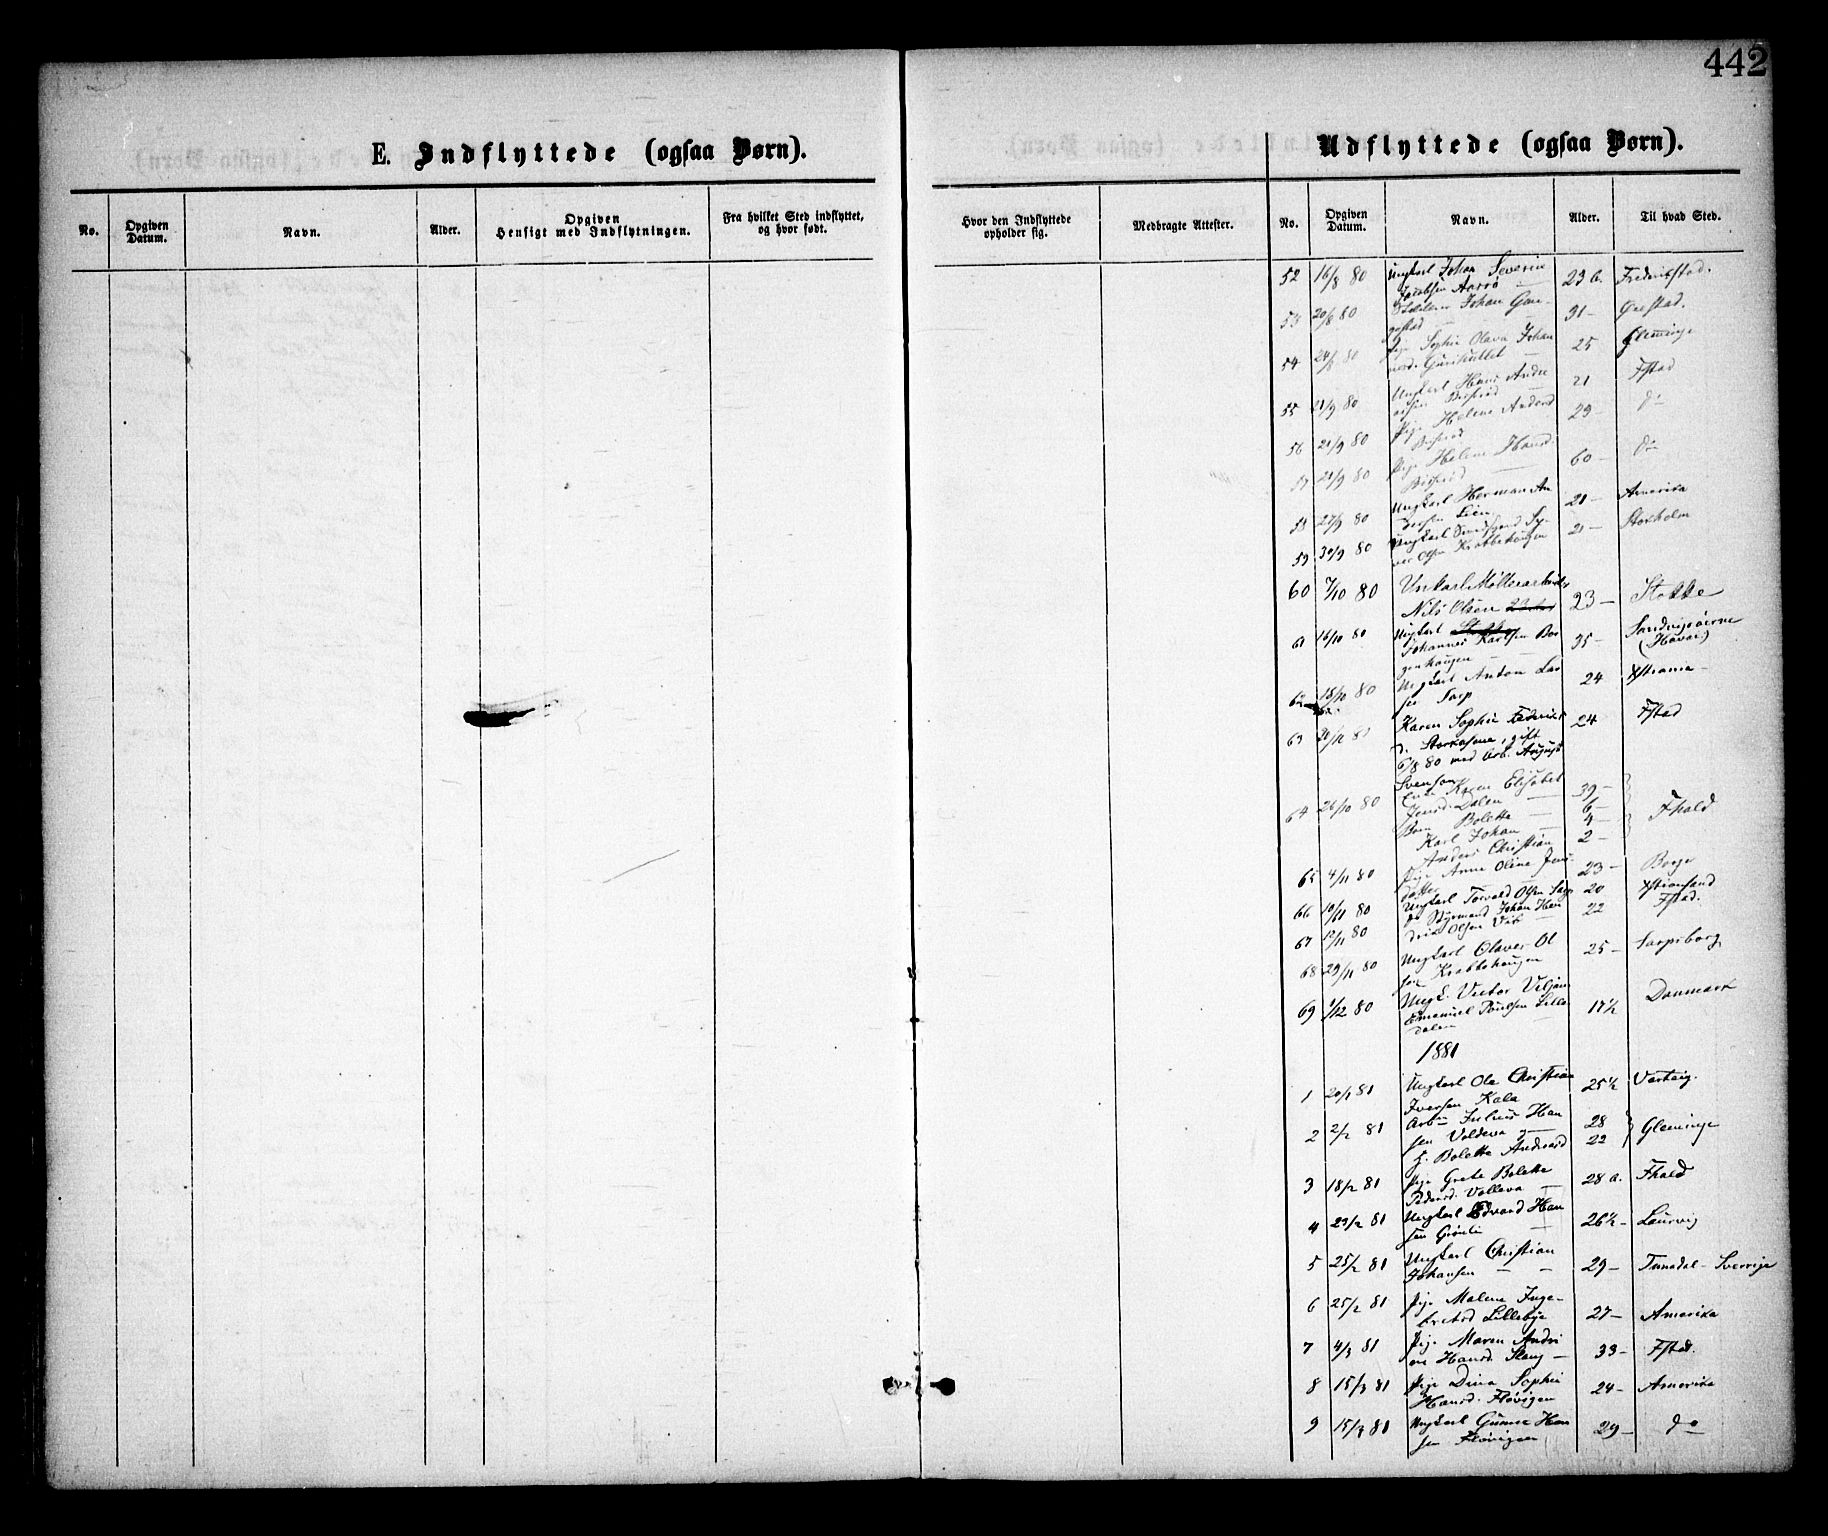 442
E. Indflyttede (ogsaa Børn).
Udflyttede (ogsaa Børn).
No.
Opgiven Datum.
Navn.
Alder.
Opgiven Hensigt med Indflytningen.
Fra hvilket Sted indflyttet, og hvor født.
Hvor den Indflyttede opholder sig.
Medbragte Attester.
No.
Opgiven Datum.
Navn.
Alder.
Til hvad Sted.
52 16/8 80 Ungkarl Johan Severin 23 Fredrikstad.
Jacobsen
53 20/8 80 Johan 31 –
54 24/8 80 Pige Sophie Olava Johan 25 Glemminge
55 21/9 80 Ungkarl Hans Andre 21 Fstad
56 21/9 80 Pige Helene Andersd 29 – do
57 21/9 80 Pige Helene Hansd. 60 – do
58 27/9 80 Ungkarl Herman An 21 – Amerika
dersen Lien
59 30/9 80 Ungkarl 21 – Stokholm
Olsen Krabbehaugen
60 7/10 80 Unkarl Møllerarbeider
Nils Olsen 23 – Stokke
61 16/10 80 Ungkarl
Johannes Karlsen Bor 35 – Sandvigsøerne
genhaugen (Havai)
62 18/10 80 Ungkarl Anton Lar 24 Xstiania –
sen Torp
63 Karen Sophie Frederiks 24 Fstad
d. gift
6/8 80 med Arb. August
Svenson
64 26/10 80 Karen Elisabet 39 –
Jensd. Dalen 6 – Fhald
Børn Bolette 4 –
Karl Johan 2 –
Anders Christian
65 4/11 80 Pige Anne Oline Jens 23 – Borge
datter
66 10/11 80 Ungkarl Torvald Olsen 20 Xstiansand
67 12/11 80 Styrmand Johan Hen 22 Fstad.
drik Olsen
68 29/11 80 Ungkarl Olaves Ol 25 – Sarpsborg
sen Krabbehaugen
69 1/12 80 Ungk. Victor Viljam
Emanuel Poulsen Lille 17 1/2 Danmark
dalen
1881
1 20/1 81 Ungkarl Ole Christian 25 1/2 Varteig.
Iversen Kala
2 2/2 81 Arbm Julius Han 28 Glemminge
sen 22
H. Bolette Andersd
3 18/2 81 Pige Grete Bolette 28 a. Fhald
Pedersd.
4 23/2 81 Ungkarl Edvard Han 26 1/2 – Laurvig
sen
5 25/2 81 Ungkarl Christian
Johansen 29 – Tunadal – Sverrige
6 25/2 81 Pige Malene Inge–
bretsd Lillebye 27 – Amerika
7 4/3 81 Pige Maren Andri
ne Hansd. 33 – Fstad.
8 15/3 81 Pige Dina Sophie 24 – Amerika
Hansd. Fløvigen
9 15/3 81 Ungkarl Gunner Han 29 – do
sen Fløvigen